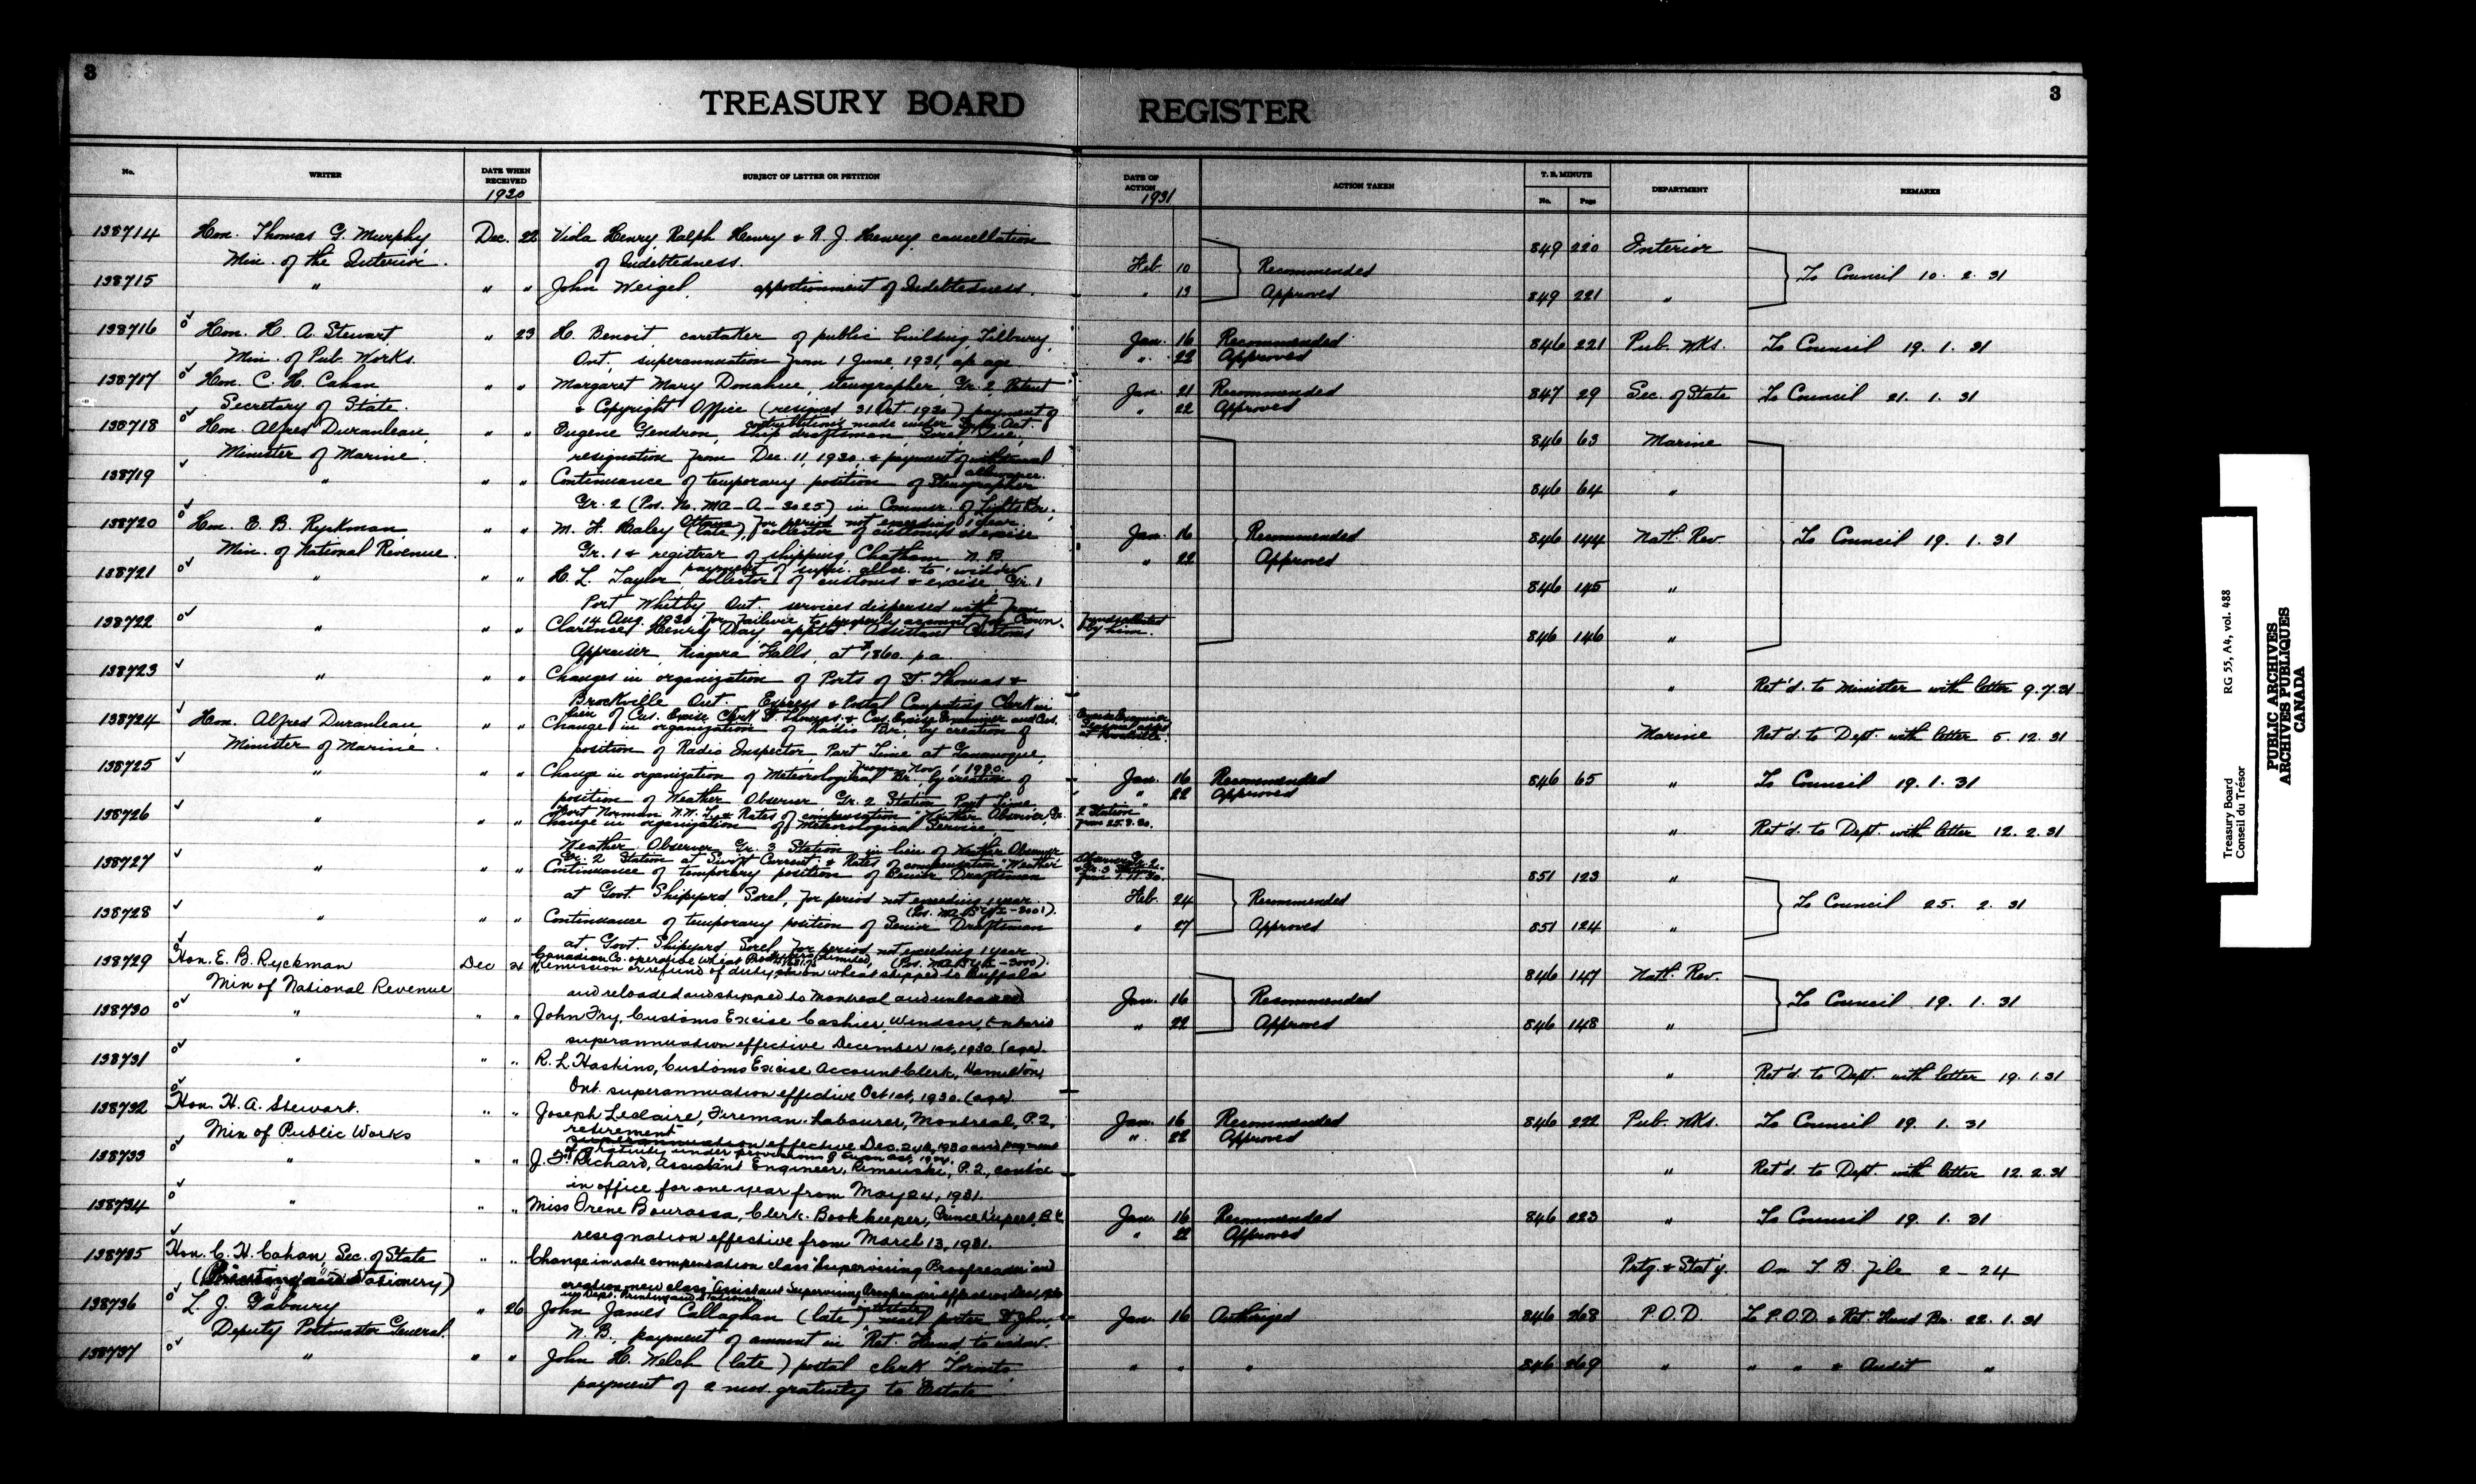 3
3
TREASURY BOARD REGISTER
No. WRITER DATE WHEN RECEIVED SUBJECT OF LETTER OR PETITION DATE OF ACTION ACTION TAKEN T. B. MINUTE No. Page DEPARTMENT REMARKS
1930 1931
138714 Hon. Thomas G. Murphy, Dec. 22 Viola Henry, Ralph Henry & R. J. Henry, cancellation 849 220 Interior
Min. of the Interior. of Indebtedness. Feb. 10 Recommended To Council 10. 2. 31
138715 " " " John Weigel, apportionment of Indebtedness. " 13 Approved 849 221 "
138716 Hon. H. A. Stewart, " 23 H. Benoit, caretaker of public building, Tilbury, Jan. 16 Recommended 846 221 Pub. Wks. To Council 19. 1. 31
Min. of Pub. Works. Ont., superannuation from 1 June, 1931, a/c age " 22 Approved
138717 Hon. C. H. Cahan " " Margaret Mary Donahue, stenographer, Gr. 2, Patent Jan. 21 Recommended 847 29 Sec. of State To Council 21. 1. 31
Secretary of State. & Copyright Office (resigned 31 Oct 1930) payment of " 22 Approved
contributions made under Act.
138718 Hon. Alfred Duranleau, " " Eugene Gendron, ship draftsman, Sorel, Que., 846 63 Marine
Minister of Marine. resignation from Dec. 11, 1930, & payment of withdrawal
allowance.
138719 " " " Continuance of temporary position of Stenographer 846 64 "
Gr. 2 (Pos. No. MA-A-3025) in Commr. of Lights Br.,
Ottawa, for period not exceeding 1 year.
138720 Hon. E. B. Ryckman, " " M. F. Haley (late), collector of customs & excise Jan. 16 Recommended 846 144 Natl. Rev. To Council 19. 1. 31
Min. of National Revenue. Gr. 1 & registrar of shipping, Chatham, N.B. " 22 Approved
payment of allce. to widow
138721 " " " H. L. Taylor, collector of customs & excise, Gr. 1 846 145 "
Port Whitby, Ont. services dispensed with from
14 Aug. 1930 for failure to properly account for Crown funds collected by him.
138722 " " " Clarence Henry Day, apptd. Assistant Customs 846 146 "
Appraiser, Niagara Falls, at $1860 p.a.
138723 " " " Changes in organization of Ports of St. Thomas & " Ret'd. to Minister with letter 9.7.31
Brockville Ont. Express & Postal Computing Clerk in
lieu of Cus. Excise Clerk St. Thomas & Cus. Excise Examiner and Cus.
138724 Hon. Alfred Duranleau, " " Change in organization of Radio Br. by creation of Marine Ret'd. to Dept. with letter 5. 12. 31
Minister of Marine. position of Radio Inspector, Part Time at Gananoque,
from Nov. 1, 1930.
138725 " " " Change in organization of Meteorological Br. by creation of Jan. 16 Recommended 846 65 " To Council 19. 1. 31
position of Weather Observer, Gr. 2 Station, Part Time, " 22 Approved
Fort Norman N.W.T. & Rates of compensation "Weather Observer, Gr. 2 Station
138726 " " " Change in organization of Meteorological Service, " Ret'd. to Dept. with letter 12. 2. 31
Weather Observer Gr. 3 Station in lieu of Weather Observer
Gr. 2 Station at Swift Current & Rates of compensation "Weather
138727 " " " Continuance of temporary position of Senior Draftsman 851 123 "
at Govt. Shipyard, Sorel, for period not exceeding 1 year. Feb. 24 Recommended To Council 25. 2. 31
138728 " " " Continuance of temporary position of Senior Draftsman " 27 Approved 851 124 "
at Govt. Shipyard Sorel, for period not exceeding 1 year
Canadian Co-operative Wheat Producers Limited,
138729 Hon. E. B. Ryckman Dec 24 Remission or refund of duty, on wheat shipped to Buffalo 846 147 Natl. Rev.
Min of National Revenue and reloaded and shipped to Montreal and unloaded Jan. 16 Recommended To Council 19. 1. 31
138730 " " " John Fry, Customs Excise Cashier, Windsor, Ontario " 22 Approved 846 148 "
superannuation effective December 1st, 1930. (age).
138731 " " " R. L. Haskins, Customs Excise Account Clerk, Hamilton, " Ret'd. to Dept. with letter 19. 1. 31
Ont. superannuation effective Oct 1st, 1930. (age).
138732 Hon. H. A. Stewart. " " Joseph Leclaire, Fireman-Labourer, Montreal, P.Q., Jan. 16 Recommended 846 222 Pub. Wks. To Council 19. 1. 31
Min of Public Works retirement effective Dec. 24th, 1930 and payment " 22 Approved
of gratuity under provisions of
138733 " " " J. F. Richard, Assistant Engineer, Rimouski, P.Q., cont'ce " Ret'd. to Dept. with letter 12. 2. 31
in office for one year from May 24, 1931.
138734 " " " Miss Irene Bourassa, Clerk-Bookkeeper, Prince Rupert, B.C. Jan. 16 Recommended 846 223 " To Council 19. 1. 31
resignation effective from March 13, 1931. " 22 Approved
138735 Hon. C. H. Cahan, Sec. of State " " Change in rate compensation class "Supervising Proofreader" and Prtg. & Stat'y. On T. B. File 2-24
(Printing and Stationery) creation new class "Assistant Supervising Proofreader"
in Dept. Printing and Stationery
138736 L. J. Gaboury " 26 John James Callaghan (late) (intestate) mail porter St John, Jan. 16 Authorized 846 268 P.O.D. To P.O.D. & Ret. Fund Br. 22. 1. 31
Deputy Postmaster General. N. B., payment of amount in Ret. Fund, to widow.
138737 " " " John H. Welch (late) postal clerk Toronto " " " 846 269 " " " & Audit "
payment of 2 mos. gratuity to Estate
Treasury Board RG 55, A4, vol. 488
Conseil du Trésor
PUBLIC ARCHIVES
ARCHIVES PUBLIQUES
CANADA